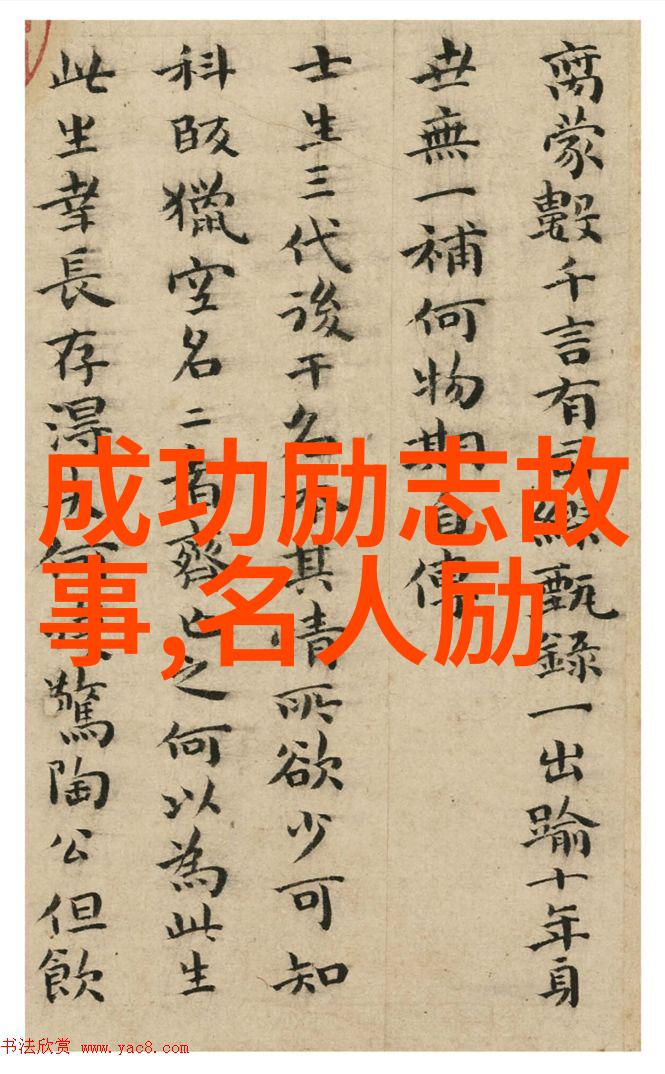 蒙數千言有甄錄一出踰十年身
世無一補何物期自傳
士生三代後干其情所欲少可知
科獵空名二者齊亡之何以為此生
此生幸長存得何驚陶公但飲
成功励志故
事,名人励
书法欣赏 www.yac8.com